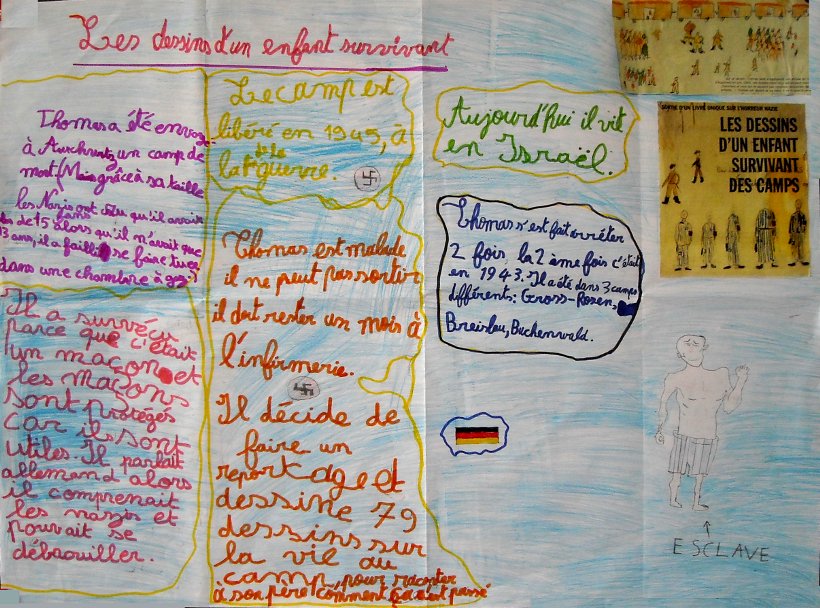 Les dessins d'un enfant survivant
Thomas a été envoyé
à Auschwitz, un camp de
mort (Mais grâce à sa taille
les Nazis ont
de 15 ans alors qu'il n'avait que
13 ans, il a failli se faire tuer
dans une chambre à gaz.)
Il a survécu
parce que c'était
un maçon et
les maçons
sont protégés
car ils sont
utiles. Il parlait
allemand alors
il comprenait
les nazis et
pouvait se
débrouiller.
Le camp est
libéré en 1945, à
la fin de la
guerre.
Thomas est malade
il ne peut pas sortir
il doit rester un mois à
l'infirmerie.
Il décide de
faire un
reportage et
dessine 79
dessins sur
la vie au
camp, pour raconter
à son père comment ça s'est passé
Aujourd'hui il vit
en Israël.
Thomas s'est fait arrêter
2 fois, la 2 ème fois c'était
en 1943. Il a été dans 3 camps
différents: Gross-Rosen,
Breislau, Buchenwald.
SORTIE D'UN LIVRE UNIQUE SUR L'HORREUR NAZIE
LES DESSINS
D'UN ENFANT
SURVIVANT
DES CAMPS
ESCLAVE